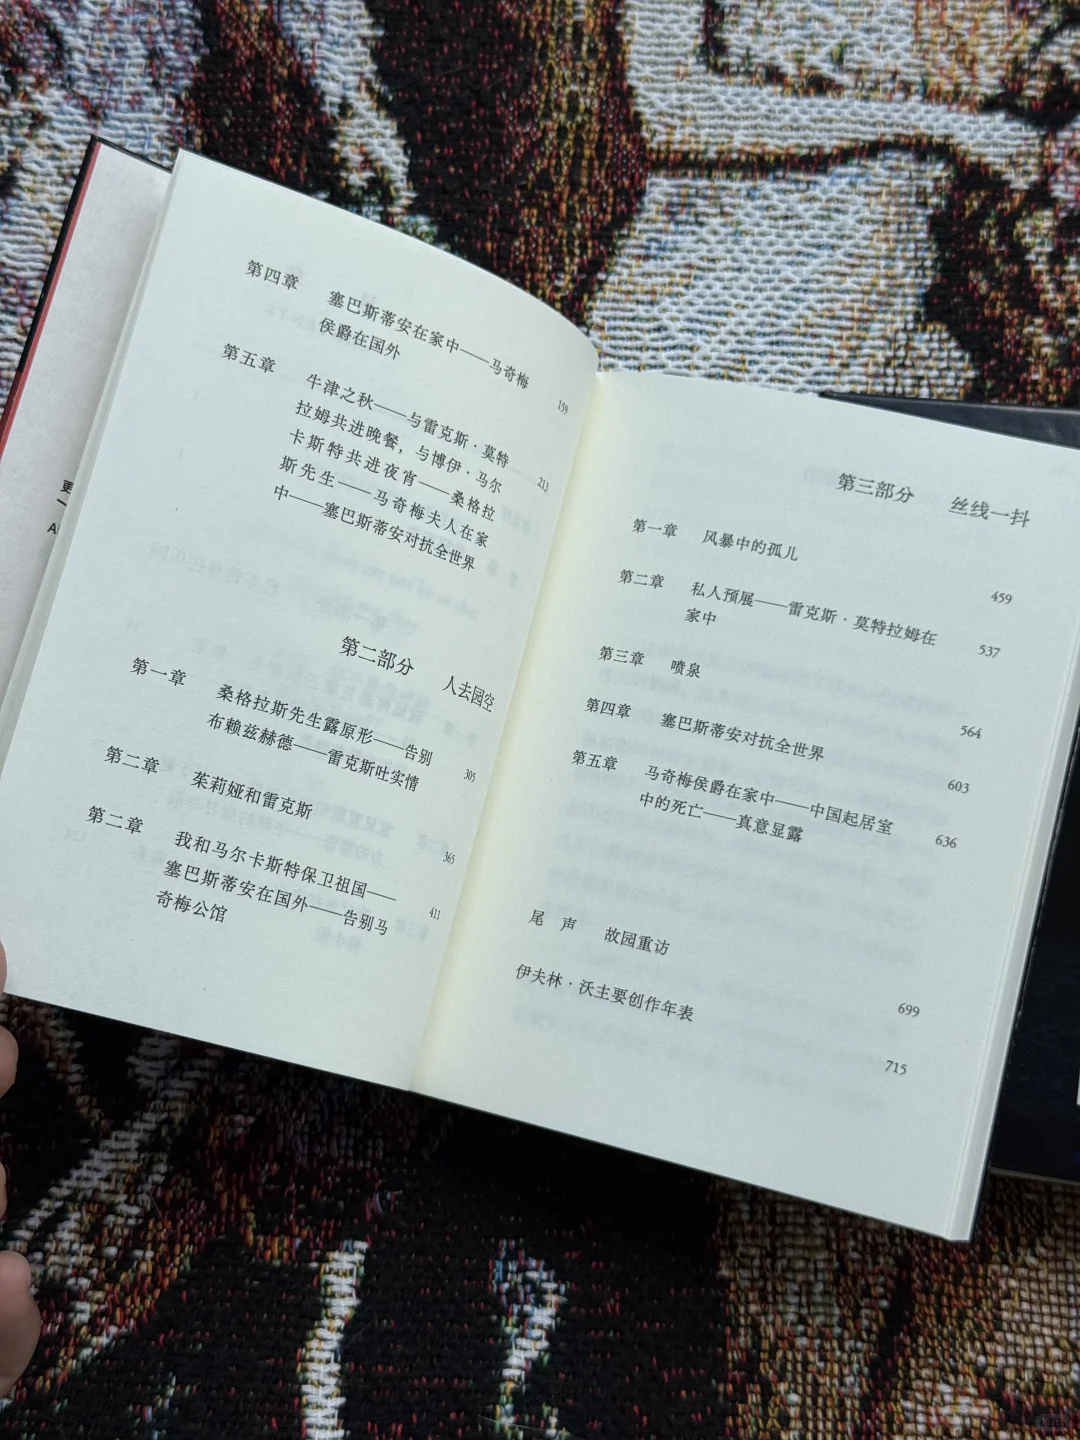 第四章 塞巴斯蒂安在家中——马奇梅
侯爵在国外 159
第五章 牛津之秋——与雷克斯·莫特
拉姆共进晚餐，与博伊·马尔
卡斯特共进夜宵——桑格拉
斯先生——马奇梅夫人在家
中——塞巴斯蒂安对抗全世界 213
第二部分 人去园空
第一章 桑格拉斯先生露原形——告别
布赖兹赫德——雷克斯吐实情 305
第二章 茱莉娅和雷克斯 365
第二章 我和马尔卡斯特保卫祖国——
塞巴斯蒂安在国外——告别马
奇梅公馆 411
第三部分 丝线一抖
第一章 风暴中的孤儿 459
第二章 私人预展——雷克斯·莫特拉姆在
家中 537
第三章 喷泉 564
第四章 塞巴斯蒂安对抗全世界 603
第五章 马奇梅侯爵在家中——中国起居室
中的死亡——真意显露 636
尾 声 故园重访 699
伊夫林·沃主要创作年表 715